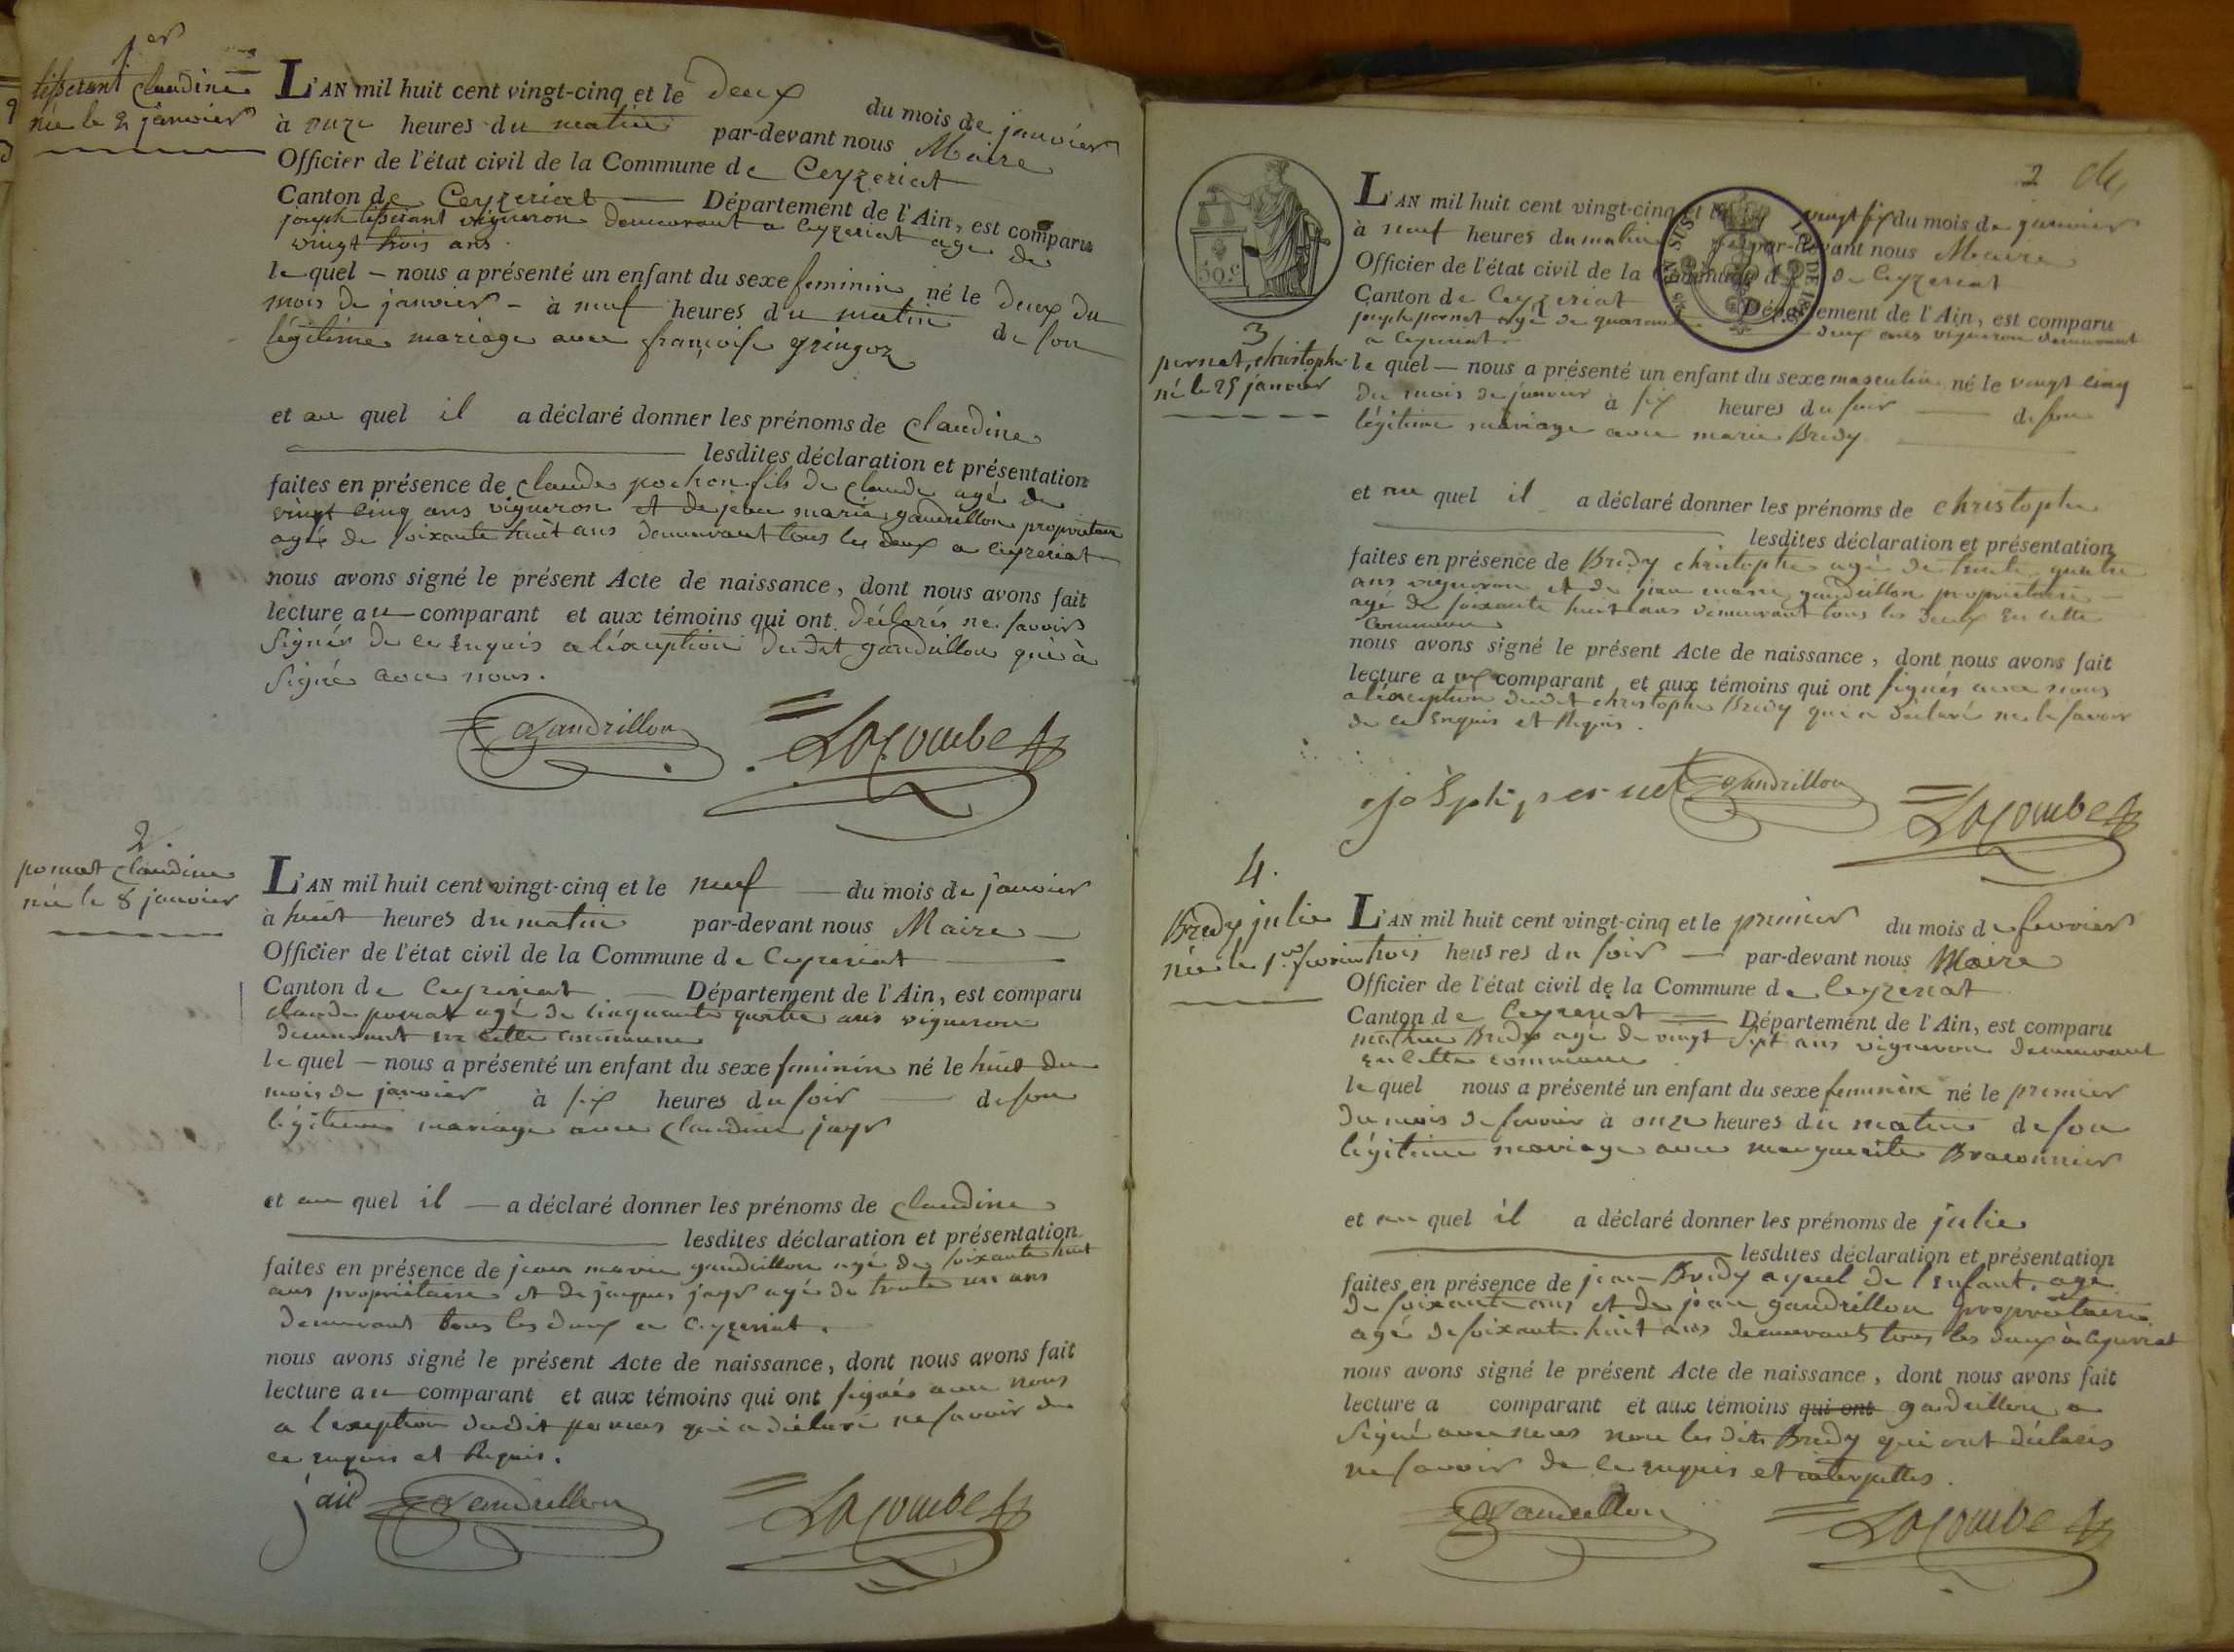 1er
tisserant Claudine
née le 2 janvier
L'AN mil huit cent vingt-cinq et le deux du mois de janvier
à onze heures du matin par-devant nous Maire
Officier de l'état civil de la Commune de Ceyzeriat
Canton de Ceyzeriat Département de l'Ain, est comparu
joseph tisserant vigneron demeurant a Ceyzeriat age de
vingt trois ans.
le quel — nous a présenté un enfant du sexe feminin né le deux du
mois de janvier - à neuf heures du matin de son
légitime mariage avec françoise gringoz
et au quel il a déclaré donner les prénoms de Claudine
lesdites déclaration et présentation
faites en présence de Claude pochon fils de Claude agé de
vingt cinq ans vigneron et de jean marie gaudrillon propriétaire
agé de soixante huit ans demeurant tous les deux a Ceyzeriat
nous avons signé le présent Acte de naissance, dont nous avons fait
lecture au comparant et aux témoins qui ont déclarés ne savoir
signer de ce enquis a l'éxception dudit gaudrillon qui à
signé avec nous.
Gaudrillon Lacombe
2.
pomat Claudine
née le 8 janvier
L'AN mil huit cent vingt-cinq et le neuf du mois de janvier
à huit heures du matin par-devant nous Maire
Officier de l'état civil de la Commune de Ceyzeriat
Canton de Ceyzeriat Département de l'Ain, est comparu
claude agé de cinquante quatre ans vigneron
demeurant en cette commune
le quel — nous a présenté un enfant du sexe feminin né le huit du
mois de janvier à six heures du soir de son
légitime mariage avec Claudine jayr
et au quel il — a déclaré donner les prénoms de Claudine
lesdites déclaration et présentation
faites en présence de jean marie gaudrillon agé de soixante huit
ans propriétaire et de jacques jayr agé de trente un ans
demeurant tous les deux a Ceyzeriat.
nous avons signé le présent Acte de naissance, dont nous avons fait
lecture au comparant et aux témoins qui ont signés avec nous
a l'exeption dudit qui a déclaré ne savoir de
ce enquis et Requis.
Gaudrillon Lacombe
2
50 c
3
pernet, christophe
né le 25 janvier
L'AN mil huit cent vingt-cinq et le vingt six du mois de janvier
à neuf heures du matin par-devant nous Maire
Officier de l'état civil de la Commune de Ceyzeriat
Canton de Ceyzeriat Département de l'Ain, est comparu
joseph pernet agé de quarante deux ans vigneron demeurant
a Ceyzeriat
le quel — nous a présenté un enfant du sexe masculin né le vingt cinq
du mois de janvier à six heures du soir de son
légitime mariage avec marie Bredy
et au quel il a déclaré donner les prénoms de christophe
lesdites déclaration et présentation
faites en présence de Bredy christophe agé de trente quatre
ans vigneron et de jean marie gaudrillon propriétaire
agé de soixante huit ans demeurant tous les deux en cette
commune
nous avons signé le présent Acte de naissance, dont nous avons fait
lecture aux comparant et aux témoins qui ont signés avec nous
a l'éxception dudit christophe Bredy qui a déclaré ne le savoir
de ce Enquis et Requis.
joseph pernet Gaudrillon Lacombe
4.
Bredy julie
née le 1er fevrier
L'AN mil huit cent vingt-cinq et le premier du mois de fevrier
à trois heures du soir — par-devant nous Maire
Officier de l'état civil de la Commune de Ceyzeriat
Canton de Ceyzeriat Département de l'Ain, est comparu
Bredy agé de vingt sept ans vigneron demeurant
en cette commune
le quel nous a présenté un enfant du sexe feminin né le premier
du mois de fevrier à onze heures du matin de son
légitime mariage avec marguerite Braconnier
et au quel il a déclaré donner les prénoms de julie
lesdites déclaration et présentation
faites en présence de jean Bredy ayeul de l'enfant, agé
de soixante ans et de jean gaudrillon propriétaire
agé de soixante huit ans demeurants tous les deux à Ceyzeriat
nous avons signé le présent Acte de naissance, dont nous avons fait
lecture a comparant et aux témoins qui ont gaudrillon a
signé avec nous non les dits Bredy qui ont déclarés
ne savoir de ce enquis et interpellés.
Gaudrillon Lacombe